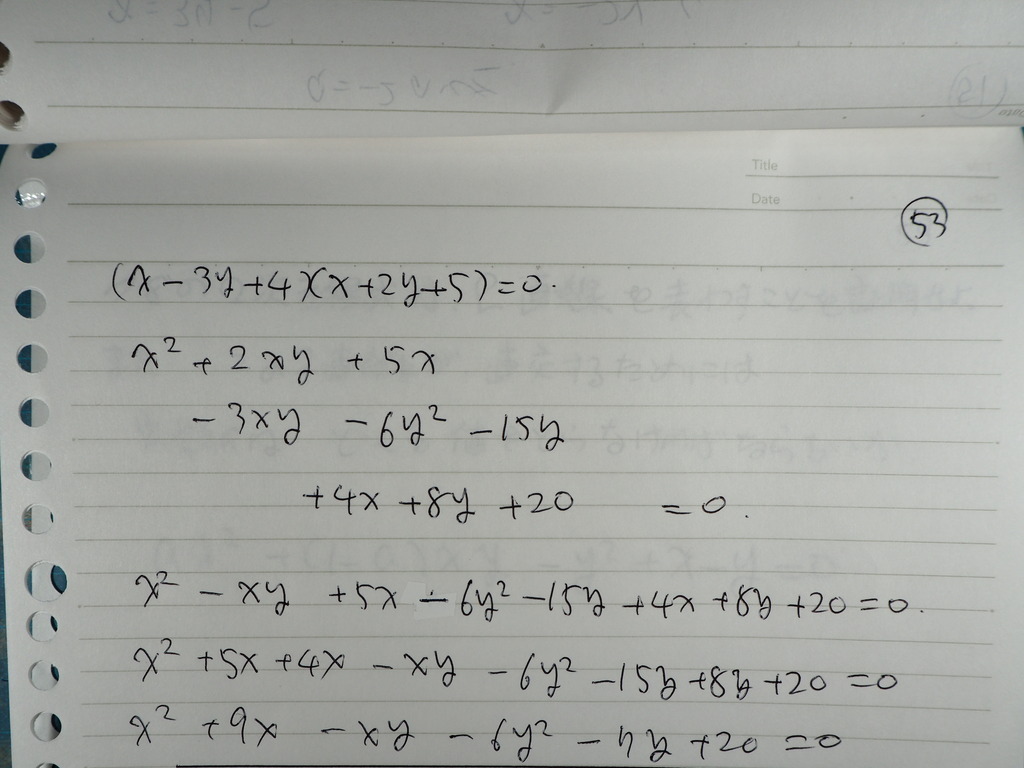 Title
Date
53
(x-3y+4)(x+2y+5)=0.
x²+2xy+5x
-3xy -6y² -15y
+4x+8y+20 =0.
x²-xy+5x-6y²-15y+4x+8y+20=0.
x²+5x+4x-xy-6y²-15y+8y+20=0
x²+9x-xy-6y²-7y+20=0